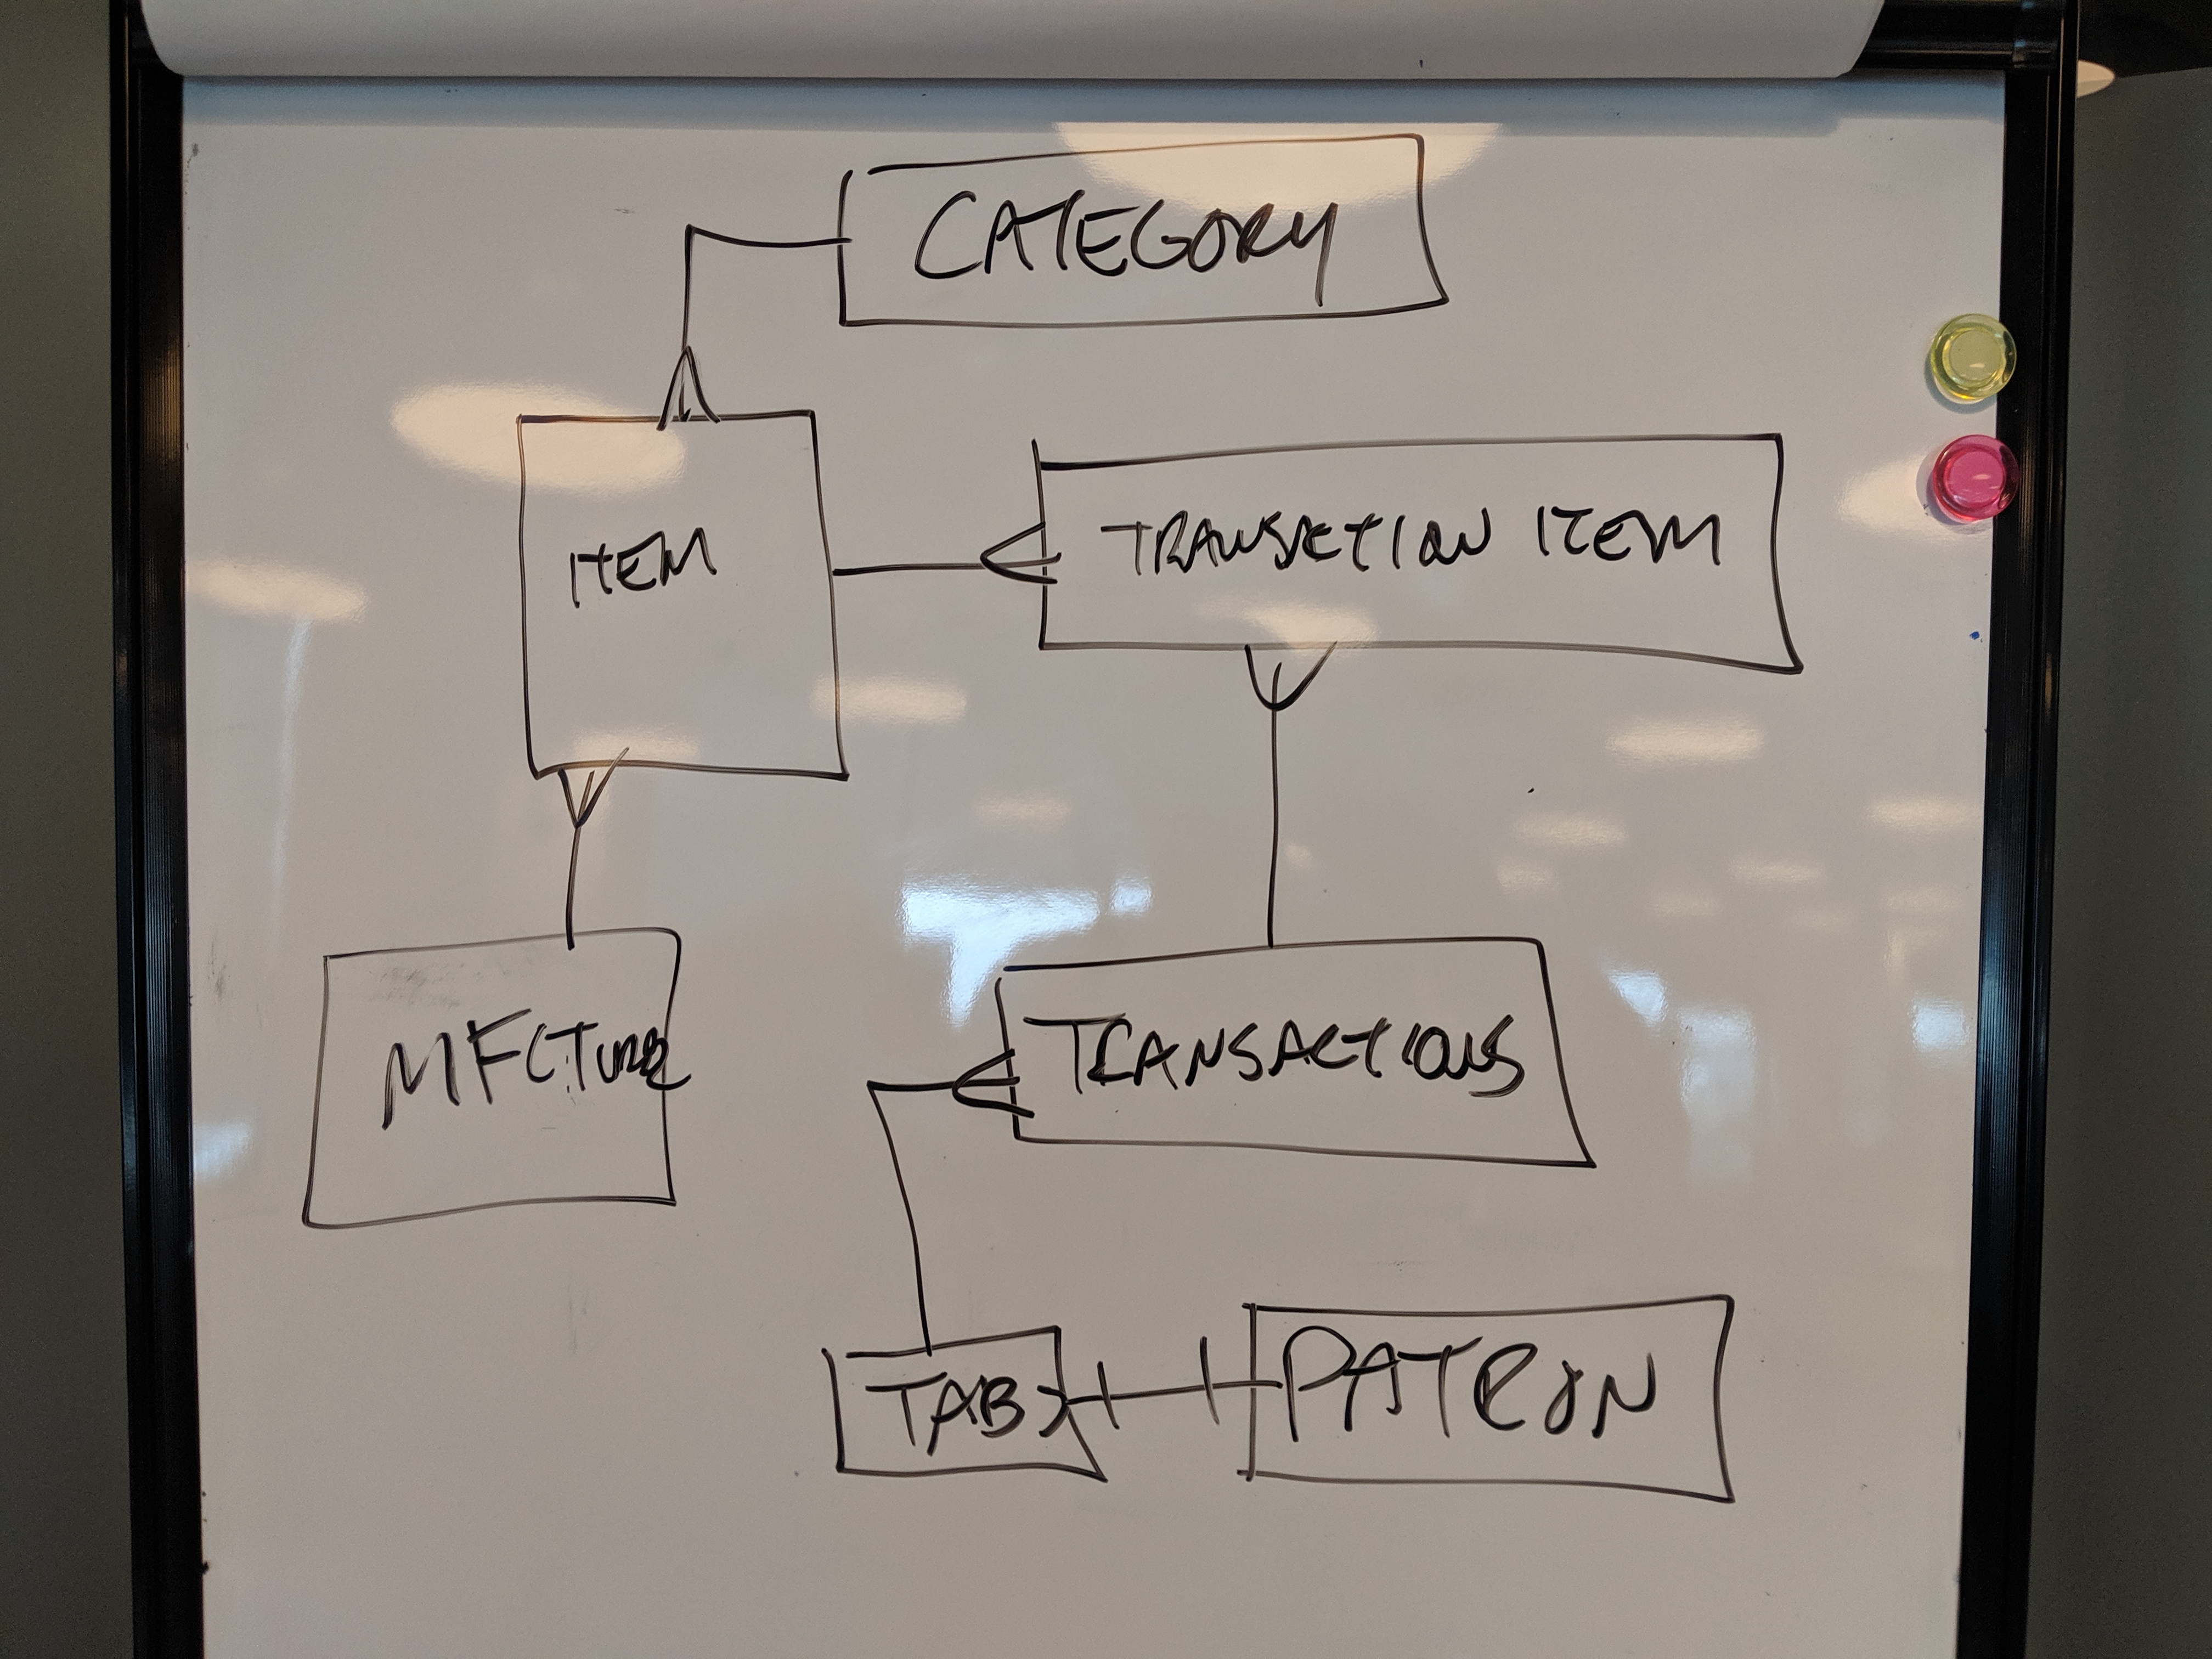 CATEGORY
ITEM
TRANSACTION ITEM
MFCTURER
TRANSACTIONS
TAB
PATRON